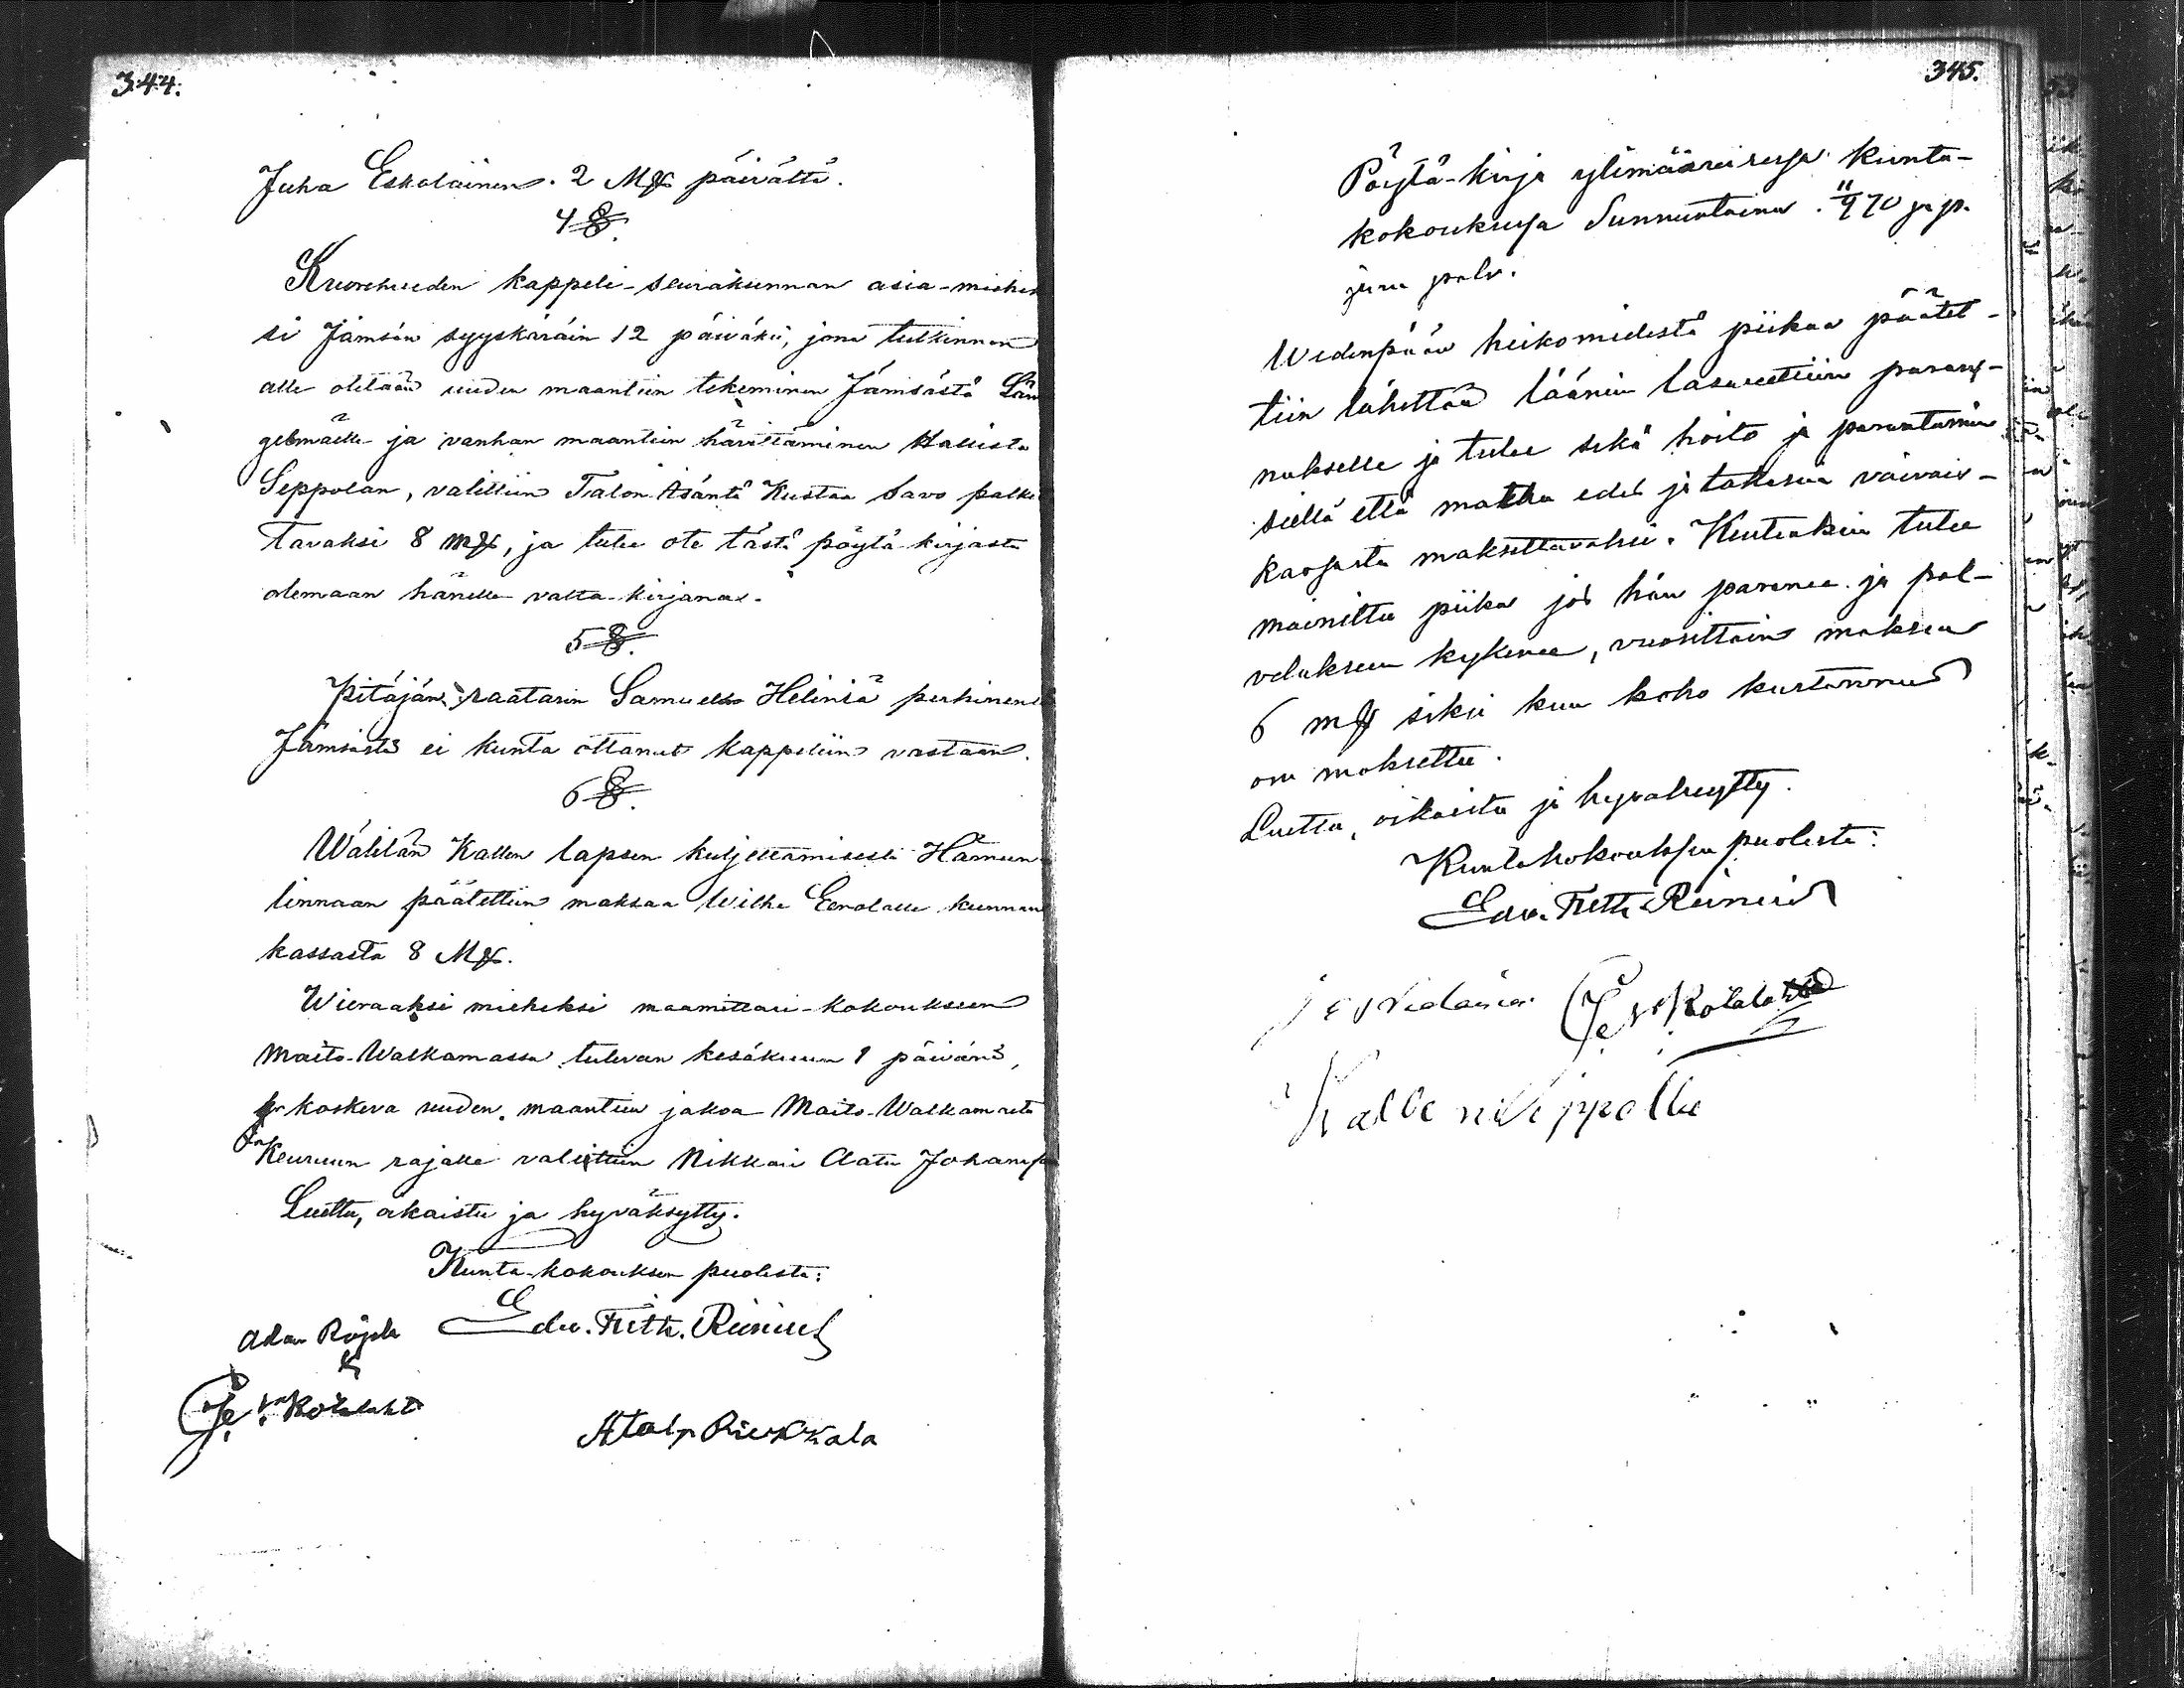 344.
Juha Eskolainen. 2 Mk päivältä.
4 §.
Kuoreheeden kappeli-seurakunnan asia-miehek
si Jämsän syyskäräin 12 päiväksi, jona tutkinnan
alle otetaan uuden maantien tekeminen Jämsästä Län
gelmäelle ja vanhan maantien hävittäminen Hallista
Seppolan, valittiin Talon Isäntä Kustaa Savo palkit
tavaksi 8 mk, ja tulee ote tästä pöytä-kirjasta
olemaan hänelle valta-kirjana.
5 §.
Pitäjän raatarin Samuel Heliniä perhinens
Jämsästä ei kunta ottanut kappeliin vastaan.
6 §.
Wälilän Kallen lapsen kuljettamisesta Hämeen
linnaan päätettiin maksaa Wilhe Eerolalle kunnan
kassasta 8 Mk.
Wieraaksi mieheksi maamittari-kokoukseen
Maito-Walkamassa tulevan kesäkuun 1 päivänä,
koskeva uuden maantien jakoa Maito-Walkamasta
Keuruun rajalle valittiin Nikkari Aatu Johansson
Luettu, oikaistu ja hyväksytty.
Kunta-kokouksen puolesta:
Edv. Fredr. Reinius
Adam Röjch
Kotalahti
Atolp Riekkala
345.
Pöytä-kirja ylimääräisessä kunta-
kokouksessa Sunnuntaina 11/9 70 ja p.
juma palv.
Wedenpään heikomielistä piikaa päätet-
tiin lähettää läänin lasarettiin paran-
nukselle ja tulee sekä hoito ja parantaminen
siellä että matka edes ja takasin väivais-
kassasta maksettavaksi. Kuitenkin tulee
mainittu piika jos hän paranee ja pal-
velukseen kykenee, vuosittain maksaa
6 mk siksi kun koko kustannus
on maksettu.
Luettu, oikaistu ja hyväksytty.
Kuntakokouksen puolesta:
Edv. Fredr. Reinius
Kotalahti
Kalle Seppolla